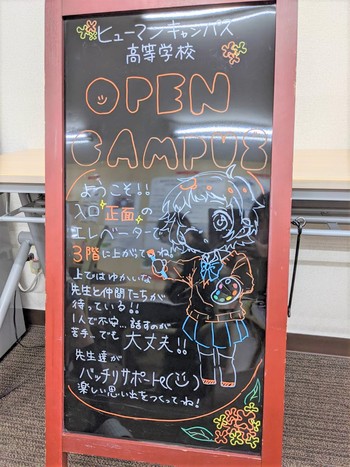 ヒューマンキャンパス
高等学校
OPEN
CAMPUS
ようこそ!!
入口正面の
エレベーターで
3階に上がってね!
上ではゆかいな
先生と仲間たちが
待っている!!
1人で不安…話すのが
苦手…でも大丈夫!!
先生達が
バッチリサポート
楽しい思い出をつくってね!